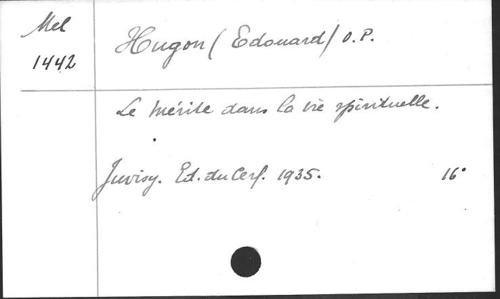 Mel
1442
Hugon (Edouard) O.P.
Le mérite dans la vie spirituelle.
Juvisy. Ed. du Cerf. 1935. 16°